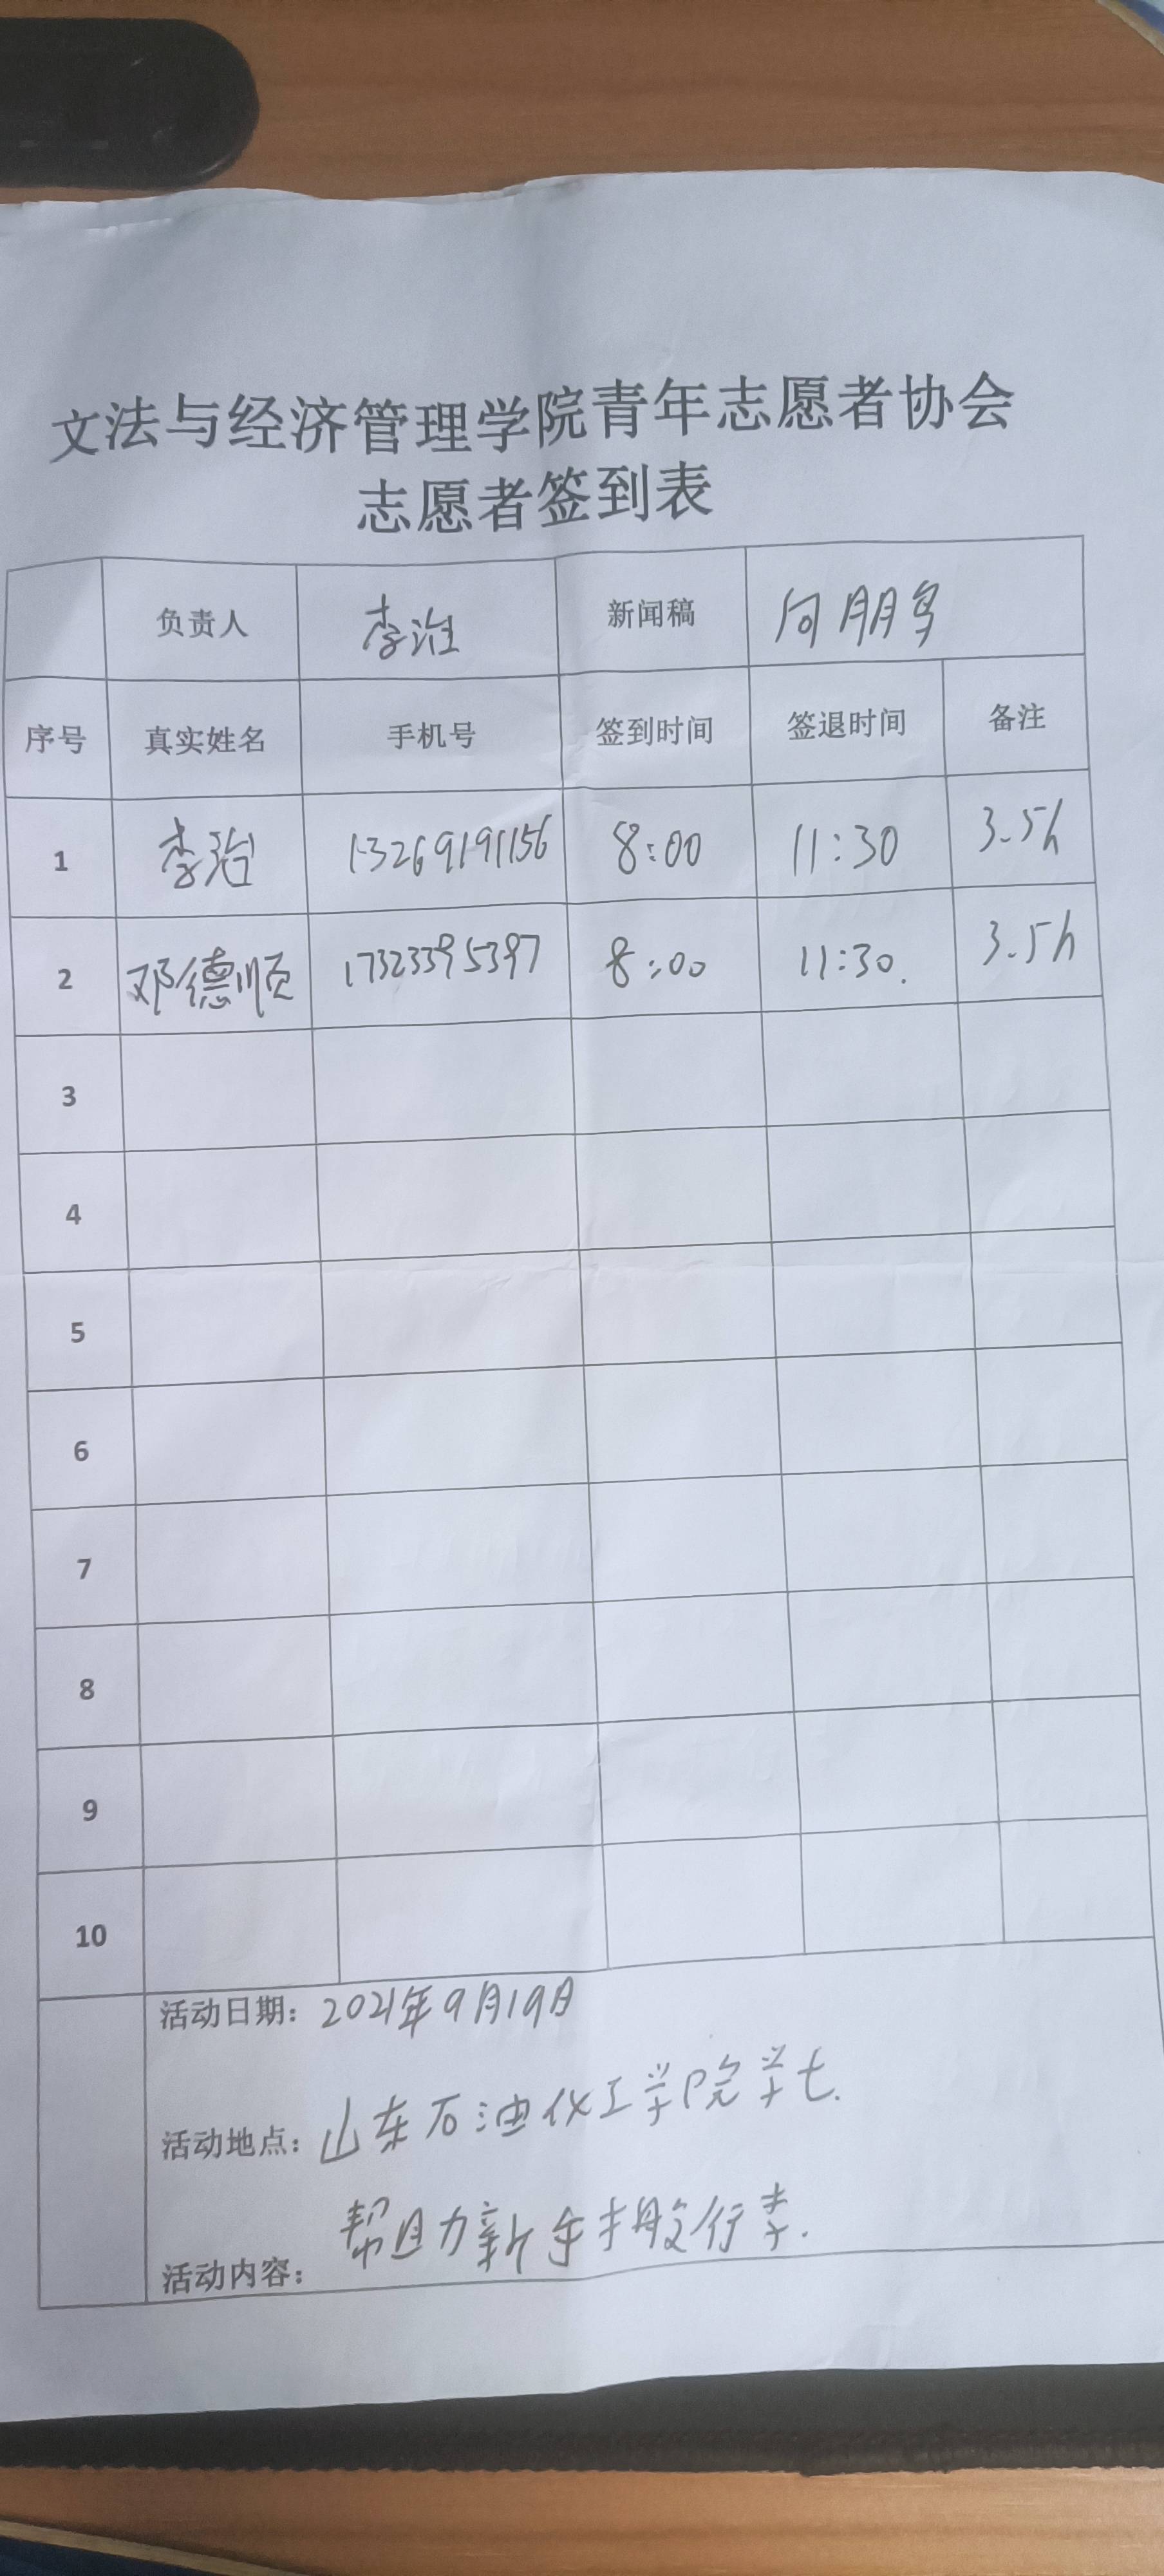 文法与经济管理学院青年志愿者协会
志愿者签到表
负责人 李治 新闻稿 向朋
序号 真实姓名 手机号 签到时间 签退时间 备注
1 李治 13269191156 8:00 11:30 3.5h
2 邓德顺 17323395397 8:00 11:30. 3.5h
3
4
5
6
7
8
9
10
活动日期: 2021年9月19日
活动地点: 山东石油化工学院学七.
活动内容: 帮助新生搬行李.